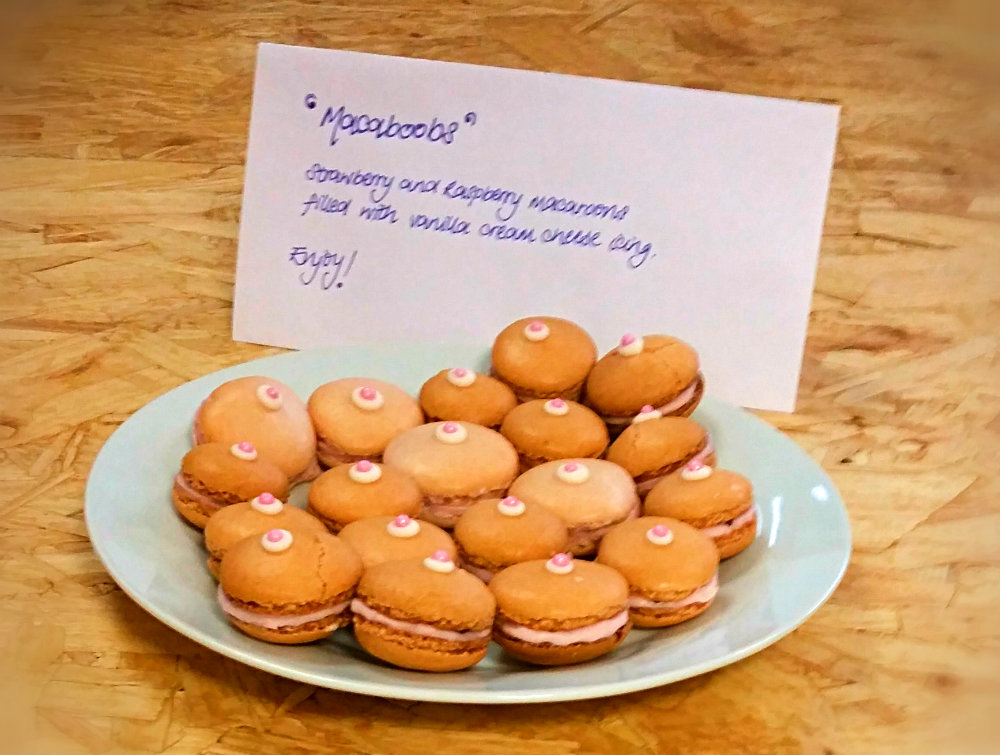 "Macaboobs"
Strawberry and Raspberry macaroons
filled with vanilla cream cheese icing.
Enjoy!